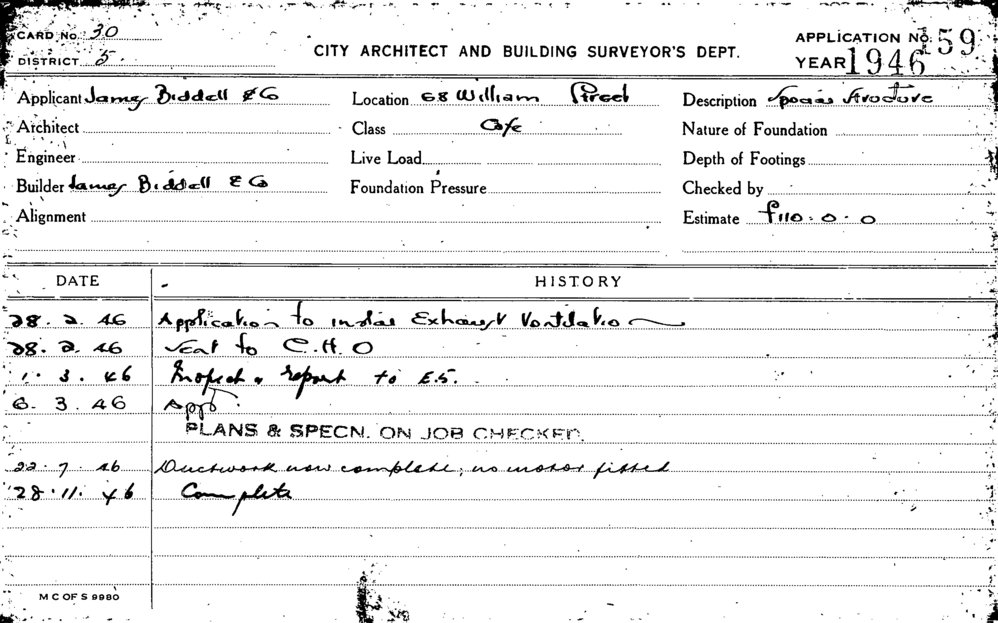 CARD No. 30
DISTRICT 5.
CITY ARCHITECT AND BUILDING SURVEYOR'S DEPT.
APPLICATION No. 59
YEAR 1946
Applicant James Biddell & Co Location 68 William Street Description Special Structure
Architect Class Cafe Nature of Foundation
Engineer Live Load Depth of Footings
Builder James Biddell & Co Foundation Pressure Checked by
Alignment Estimate £110.0.0
DATE HISTORY
28.2.46 Application to instal Exhaust Ventilation
28.2.46 Sent to C.H.O
1.3.46 Inspect & report to E.S.
6.3.46 Appd
PLANS & SPECN. ON JOB CHECKED.
22.7.46 Ductwork now complete; no motor fitted
28.11.46 Complete
M C OF S 9980